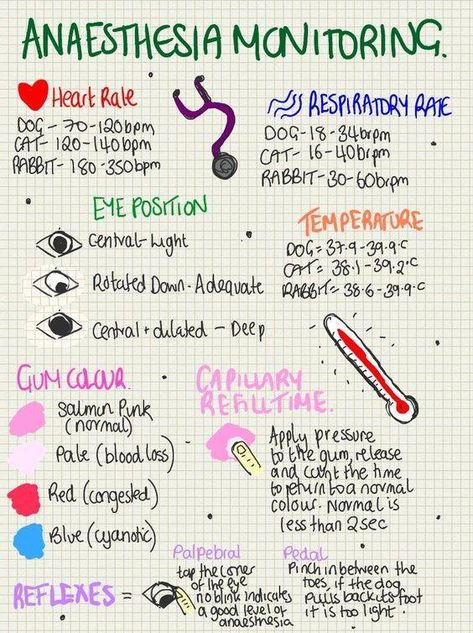 ANAESTHESIA MONITORING.
Heart Rate
DOG - 70-120bpm
CAT - 120-140bpm
RABBIT - 180-350bpm
RESPIRATORY RATE
DOG-18-34brpm
CAT- 16-40brpm
RABBIT-30-60brpm
EYE POSITION
Central-Light
Rotated Down-Adequate
Central + dilated - Deep
TEMPERATURE
DOG = 37.9-39.9°C
CAT = 38.1-39.2°C
RABBIT= 38.6-39.9°C
GUM COLOUR.
Salmon Pink
(normal)
Pale (blood loss)
Red (congested)
Blue (cyanotic)
CAPILLARY
REFILL TIME.
Apply pressure
to the gum, release
and count the time
to return to a normal
colour. Normal is
less than 2sec
REFLEXES =
Palpebral
tap the corner
of the eye
no blink indicates
a good level of
anaesthesia
Pedal
Pinch in between the
toes, if the dog
pulls back its foot
it is too light.